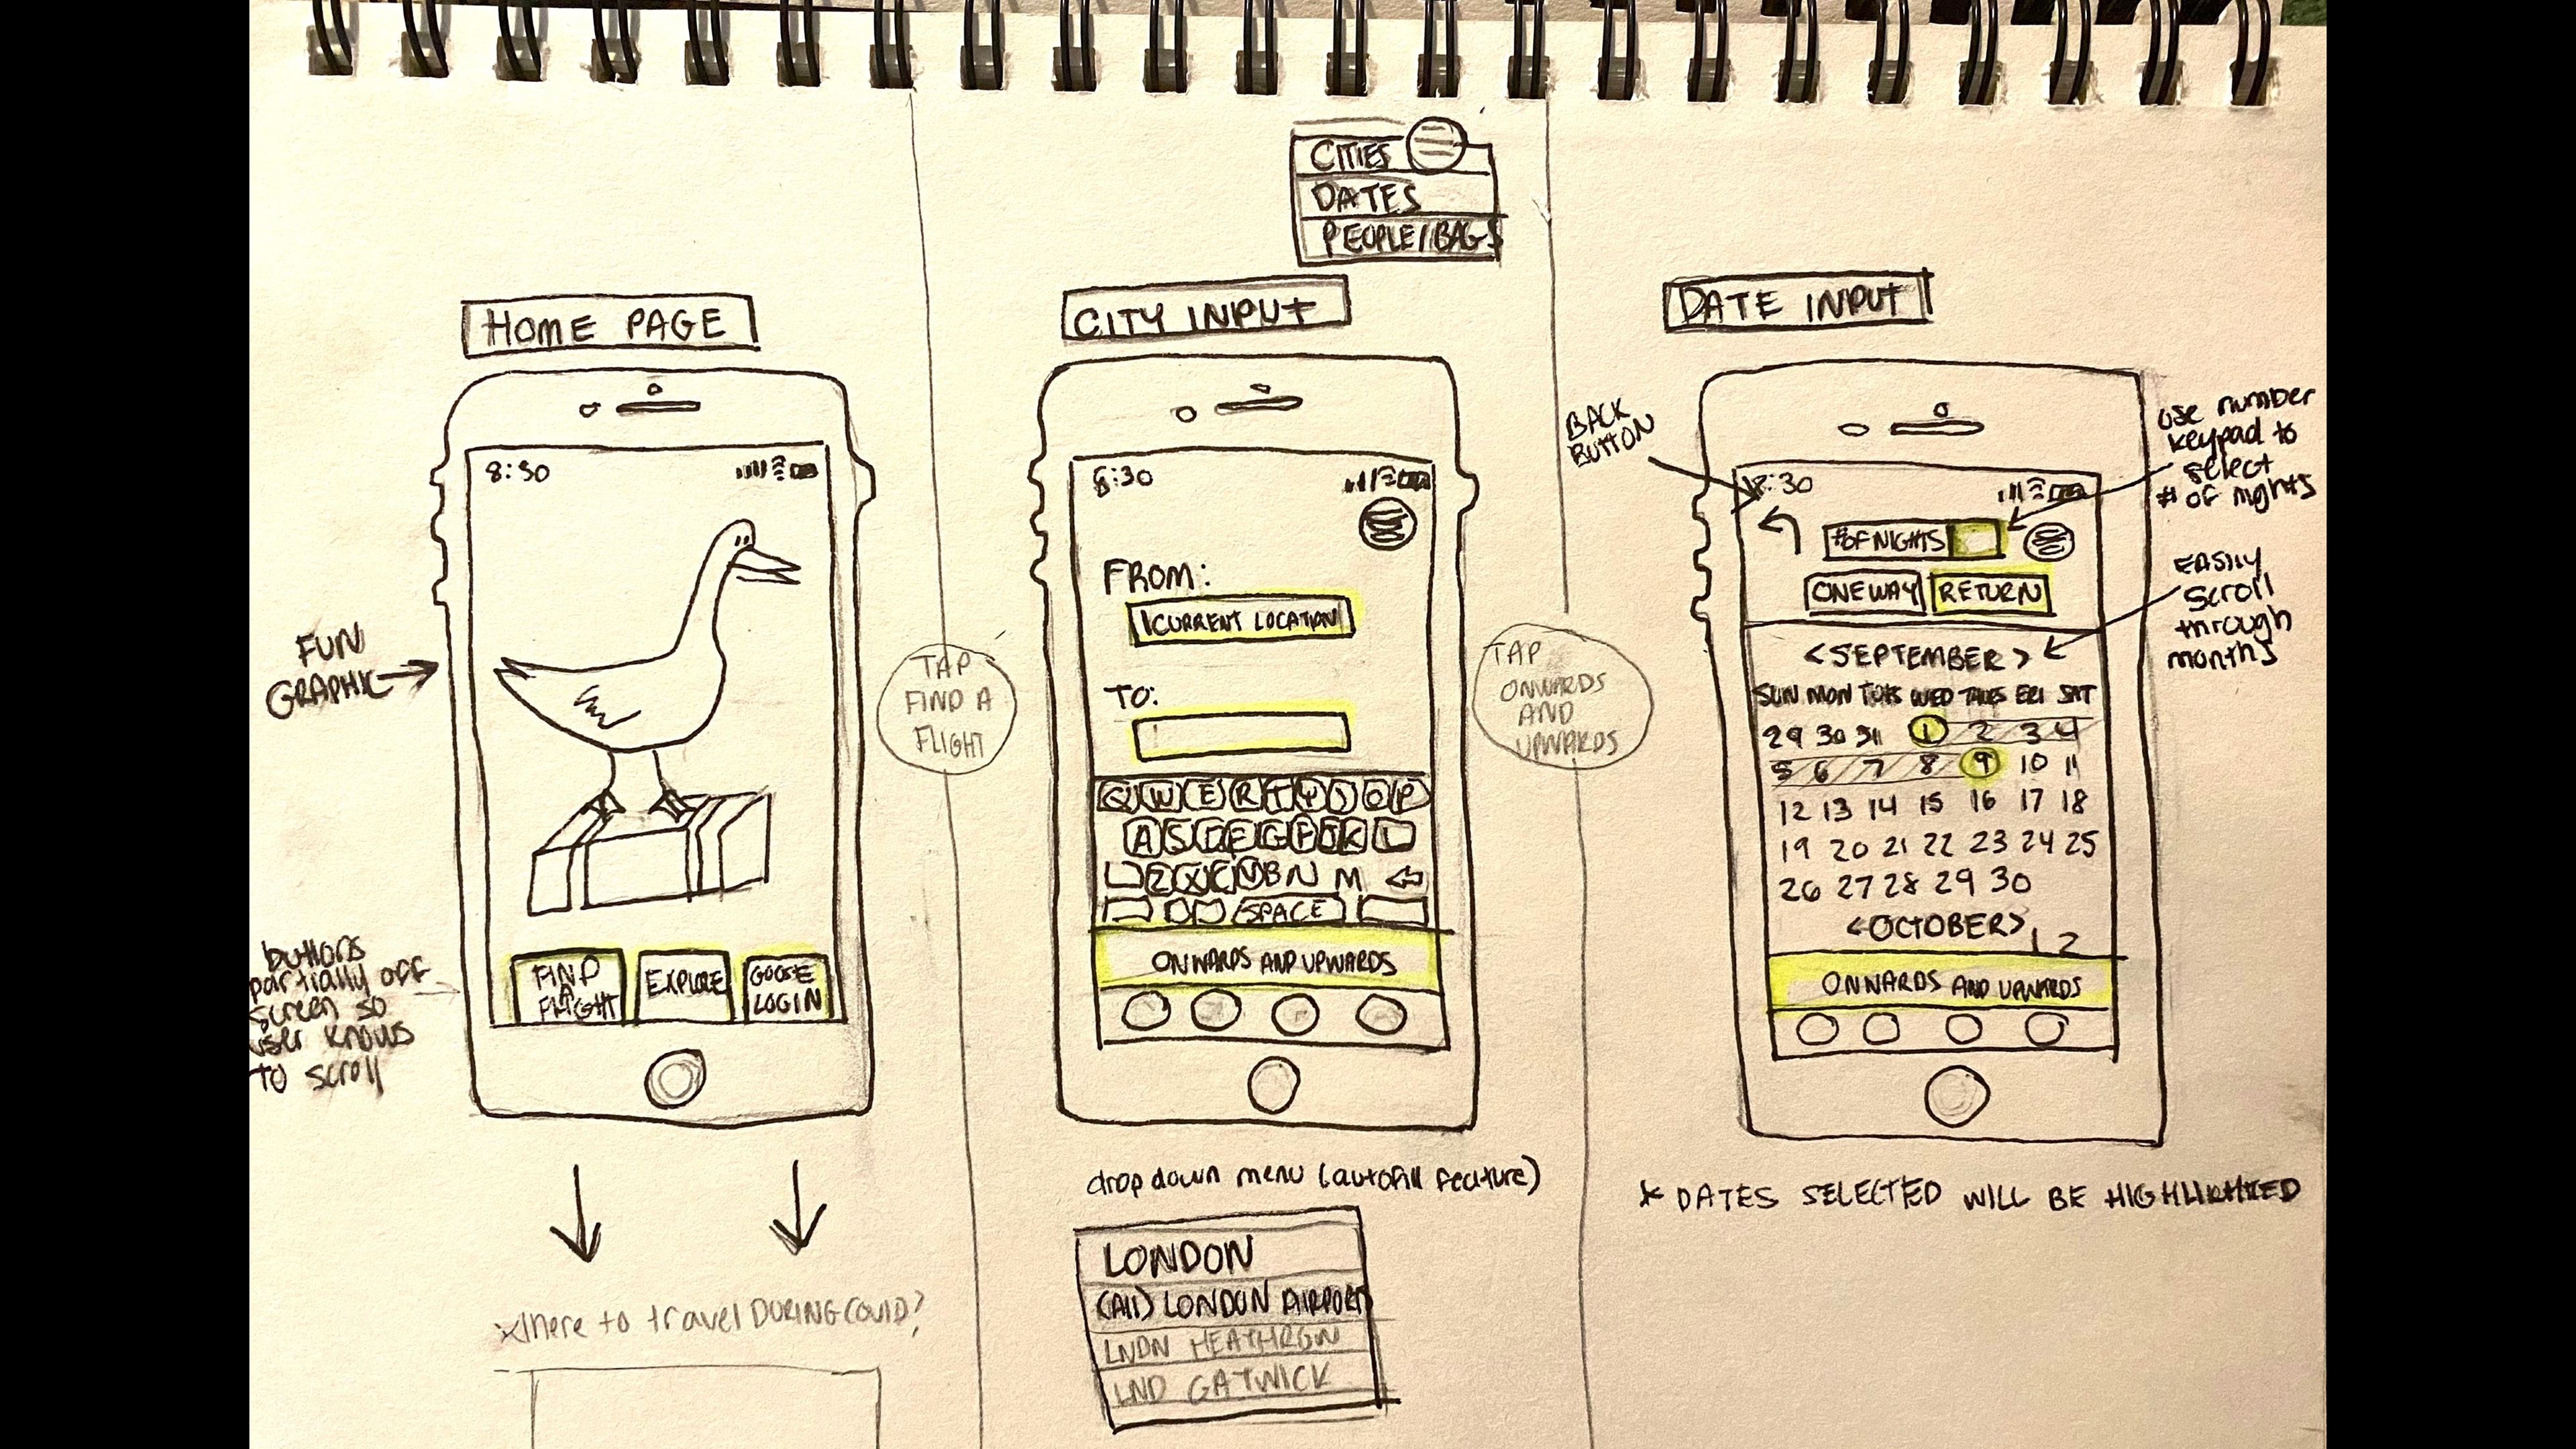 CITIES
DATES
PEOPLE/BAGS
HOME PAGE
8:30
FUN
GRAPHIC
FIND
A
FLIGHT
EXPLORE
GOOSE
LOGIN
buttons
partially off
screen so
user knows
to scroll
where to travel DURING COVID?
TAP
FIND A
FLIGHT
CITY INPUT
8:30
FROM:
CURRENT LOCATION
TO:
SPACE
ONWARDS AND UPWARDS
drop down menu (autofill feature)
LONDON
(All) LONDON AIRPORT
LNDN HEATHROW
LND GATWICK
TAP
ONWARDS
AND
UPWARDS
DATE INPUT
BACK
BUTTON
8:30
# OF NIGHTS
ONEWAY
RETURN
use number
keypad to
select
# of nights
EASILY
scroll
through
months
<SEPTEMBER>
SUN MON TUES WED THURS FRI SAT
29 30 31 1 2 3 4
5 6 7 8 9 10 11
12 13 14 15 16 17 18
19 20 21 22 23 24 25
26 27 28 29 30
<OCTOBER>
1 2
ONWARDS AND UPWARDS
* DATES SELECTED WILL BE HIGHLIGHTED